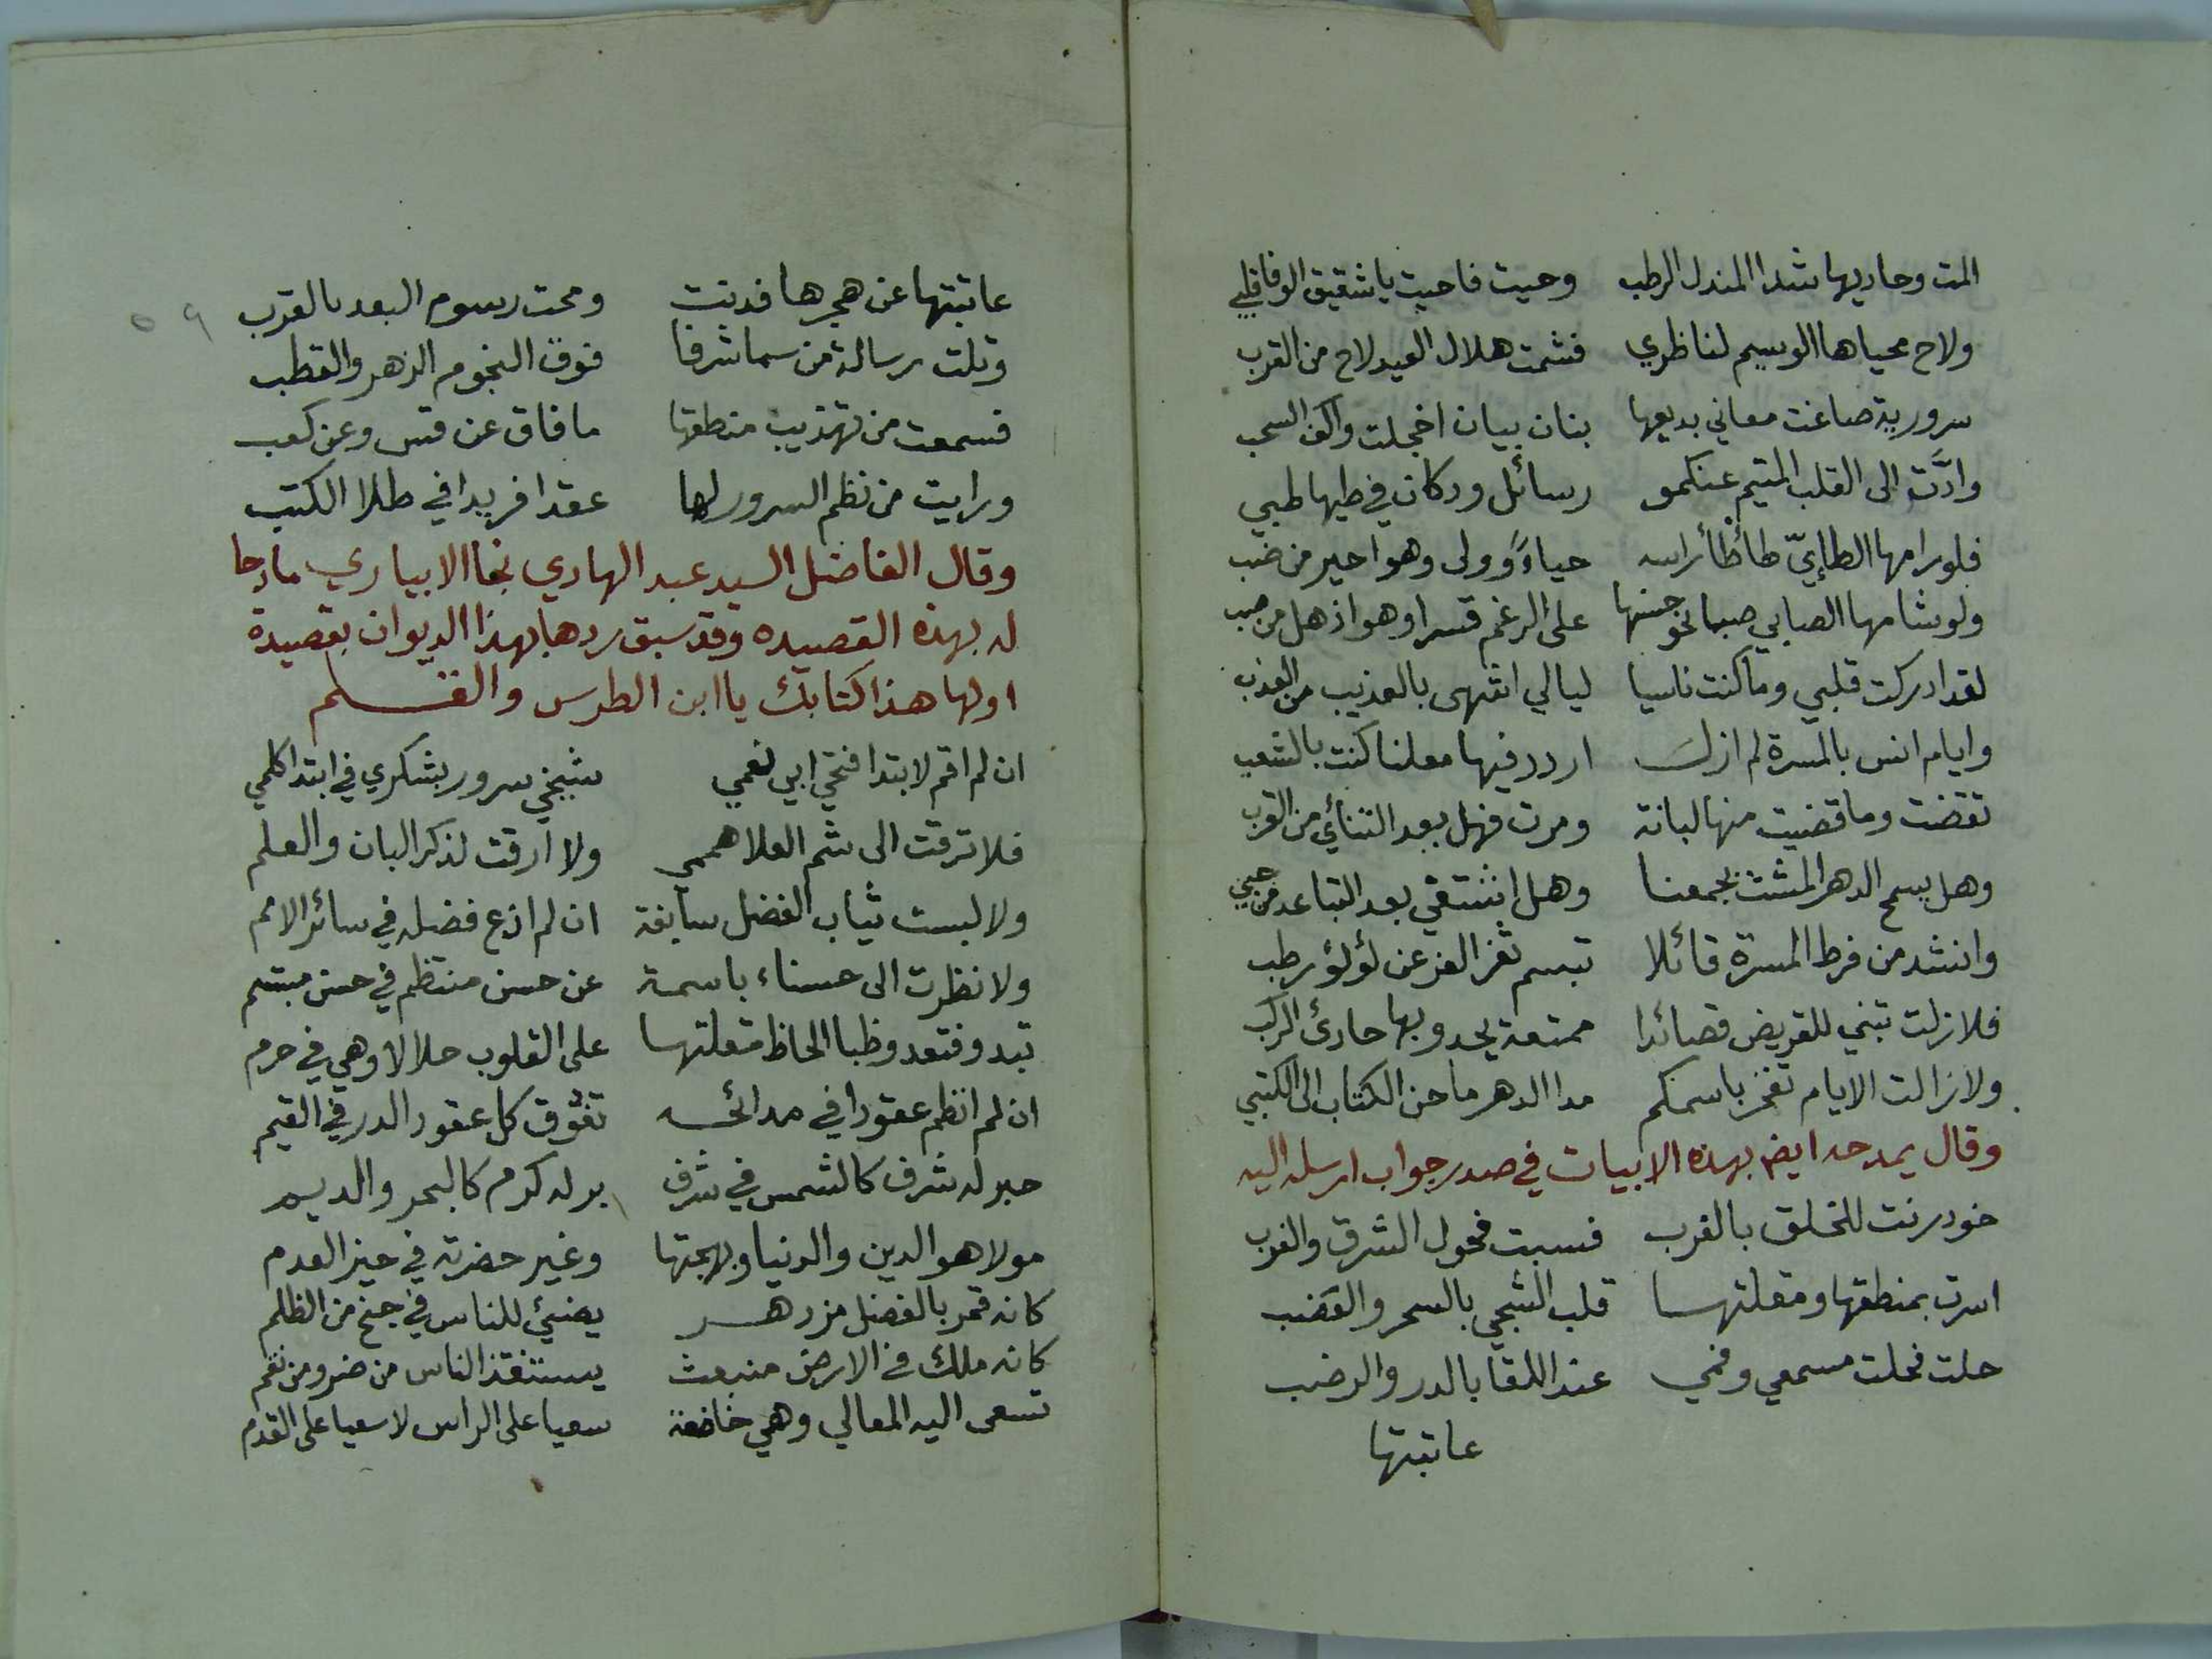 المت وحاديها شدا المندل الرطب وحيت فاحيت يا شقيق الوفا قلبي
ولاح محياها الوسيم لناظري فشمت هلال العيد لاح من القرب
سرورية صاغت معاني بديعها بنان بيان اخجلت واكف السحب
وادَّت الى القلب المتيم عنكمو رسائل ود كان في طيها طبي
فلو رامها الطائيّ طأطأ راسه حياءً وولى وهو احير من ضب
ولو شامها الصابي صبا نحو حسنها على الرغم قسرا وهو اذهل من صب
لقد ادركت قلبي وما كنت ناسيا ليالي انتهى بالعذيب من العذب
وايام انس بالمسرة لم ازل اردد فيها معلنا كنت بالشعب
تقضت وما قضيت منها لبانة ومرت فهل بعد التنائي من القرب
وهل يسمح الدهر المشت بجمعنا وهل انتشقي بعد التباعد من حبي
وانشد من فرط المسرة قائلا تبسم ثغر العز عن لؤلؤ رطب
فلا زلت تبني للقريض قصائدا ممتعة يحدو بها حادئ الركب
ولا زالت الايام تفخر باسمكم مدا الدهر ما حن الكتاب الى الكتبي
وقال يمدحه ايضم بهذه الابيات في صدر جواب ارسله اليه
خود رنت للخلق بالغرب فسبت فحول الشرق والغرب
اسرت بمنطقها ومقلتها قلب الشجي بالسحر والقضب
حلت فحلت مسمعي وفمي عند اللقا بالدر والرضب
عاتبتها
٥٩
عاتبتها عن هجرها فدنت ومحت رسوم البعد بالقرب
وتلت رسالة من سما شرفا فوق النجوم الزهر والقطب
فسمعت من تهذيب منطقها ما فاق عن قس وعن كعب
ورايت من نظم السرور لها عقدا فريدا في طلا الكتب
وقال الفاضل السيد عبد الهادي نجا الابياري مادحا
له بهذه القصيده وقد سبق ردها بهذا الديوان بقصيدة
اولها هذا كتابك يا ابن الطرس والقلم
ان لم اقم لابتدا فتحي ابي نعمي شيخي سرور بشكري في ابتدا كلمي
فلا ترقت الى شم العلا هممي ولا ارقت لذكر البان والعلم
ولا لبست ثياب الفضل سابغة ان لم اذع فضله في سائر الامم
ولا نظرت الى حسناء باسمة عن حسن منتظم في حسن مبتسم
تبدو فتعدو ظبا الحاظ مقلتها على القلوب حلالا وهي في حرم
ان لم انظم عقودا في مدائحه تفوق كل عقود الدر في القيم
حبر له شرف كالشمس في شرف بر له كرم كالبحر والديم
مولا هو الدين والدنيا وبهجتها وغير حضرته في حيز العدم
كانه قمر بالفضل مزدهر يضيئ للناس في جنح من الظلم
كانه ملك في الارض منبعث يستنقذ الناس من ضر ومن نقم
تسعى اليه المعالي وهي خاضعة سعيا على الراس لا سعيا على القدم